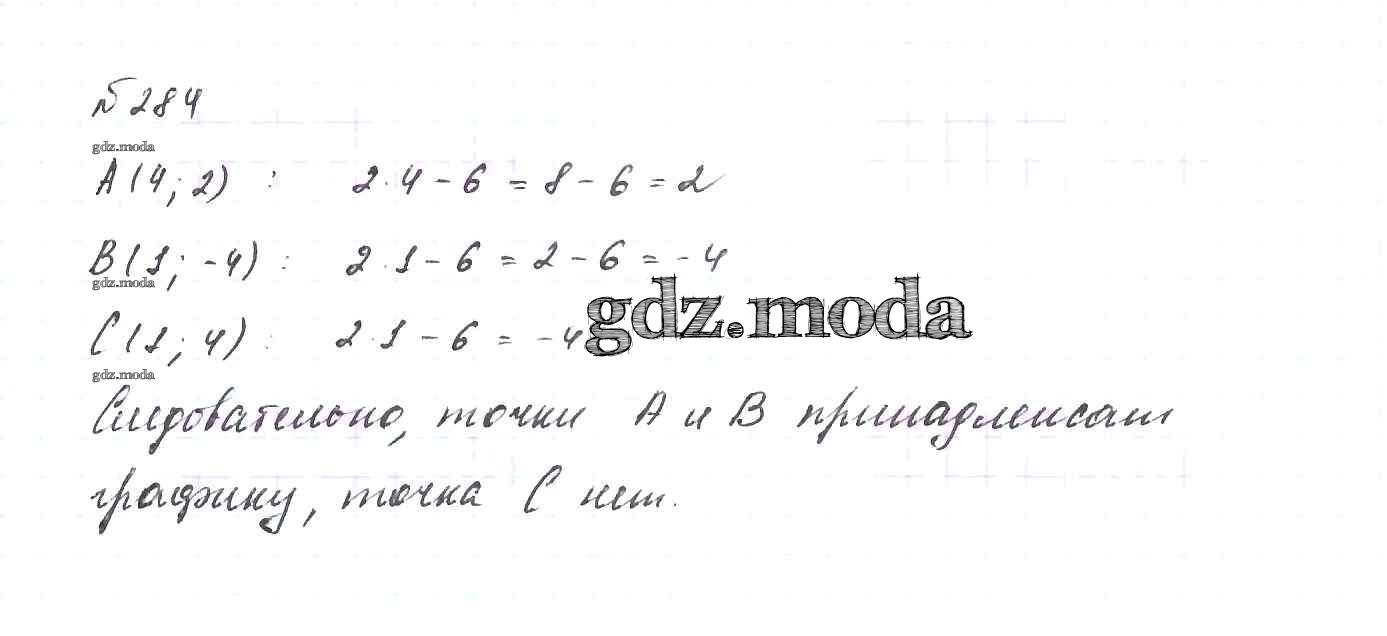 № 284
gdz.moda
A (4; 2) : 2·4 - 6 = 8 - 6 = 2
B (1; -4) : 2·1 - 6 = 2 - 6 = -4
gdz.moda
gdz.moda
C (1; 4) : 2·1 - 6 = -4
gdz.moda
Следовательно, точки A и B принадлежат
графику, точка C нет.